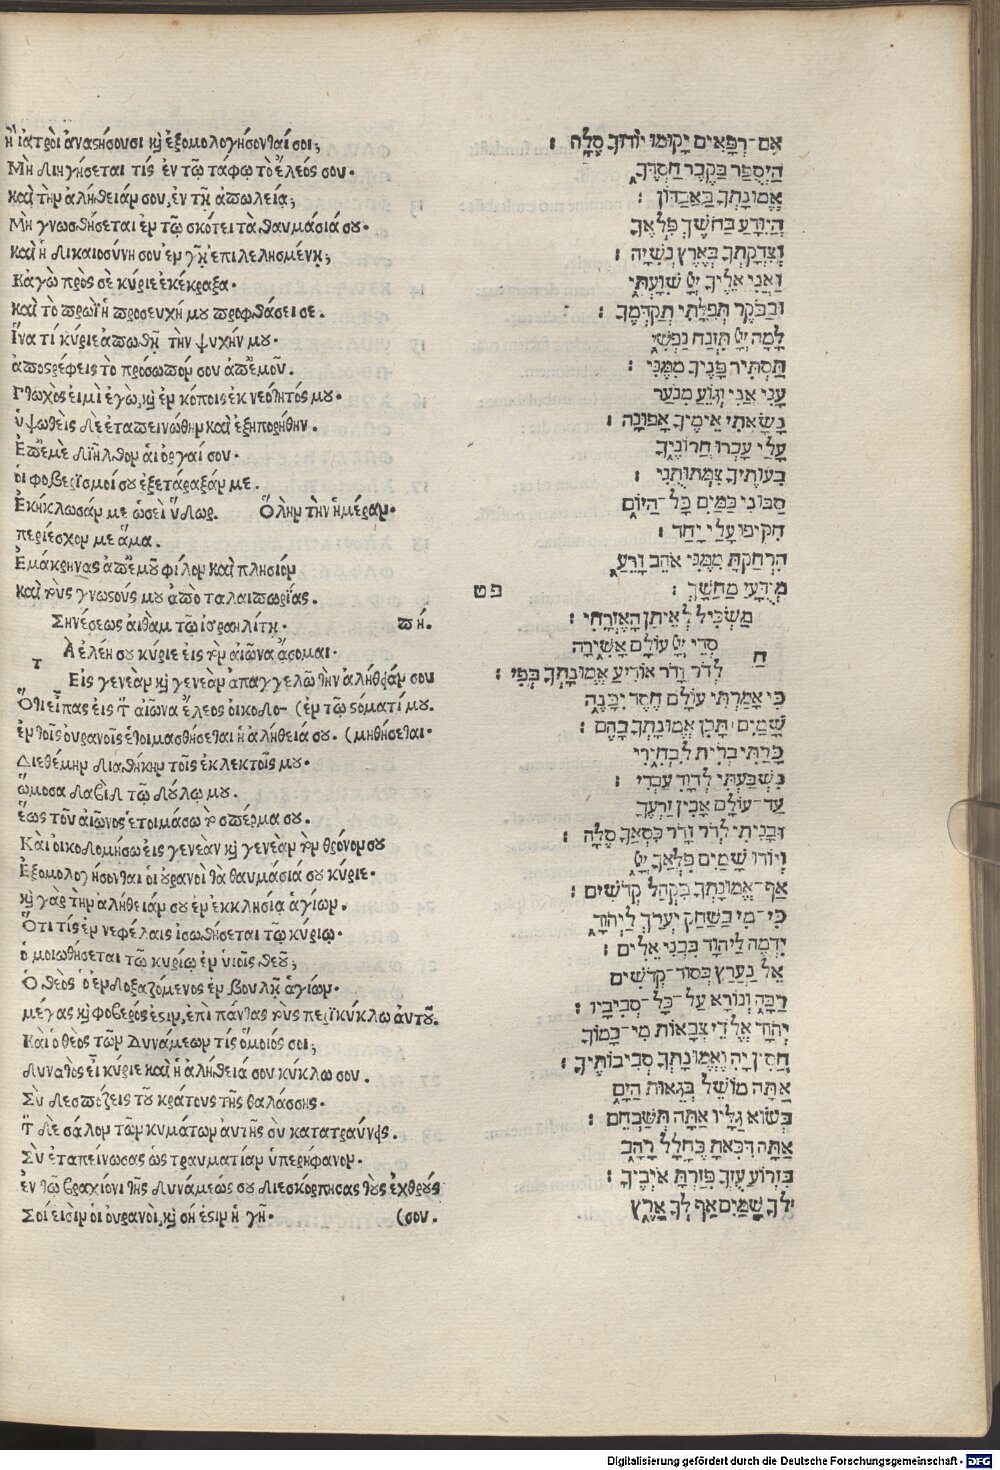 ἢ ἰατροὶ ἀναστήσουσι καὶ ἐξομολογήσονταί σοι;
Μὴ διηγήσεται τίς ἐν τῶ τάφω τὸ ἔλεός σου·
καὶ τὴν ἀλήθειάν σου, ἐν τῇ ἀπωλεία;
Μὴ γνωσθήσεται ἐν τῶ σκότει τὰ θαυμάσιά σου·
καὶ ἡ δικαιοσύνη σου ἐν γῇ ἐπιλελησμένῃ;
Κἀγὼ πρὸς σὲ κύριε ἐκέκραξα·
καὶ τὸ πρωῒ ἡ προσευχή μου προφθάσει σε.
Ἵνα τί κύριε ἀπωθῇ τὴν ψυχήν μου·
ἀποστρέφεις τὸ πρόσωπον σου ἀπ' ἐμοῦ.
Πτωχός εἰμι ἐγὼ, καὶ ἐν κόποις ἐκ νεότητός μου·
ὑψωθεὶς δὲ ἐταπεινώθην καὶ ἐξηπορήθην.
Ἐπ' ἐμὲ διῆλθον αἱ ὀργαί σου·
οἱ φοβερισμοί σου ἐξετάραξάν με.
Ἐκύκλωσάν με ὡσεὶ ὕδωρ. Ὅλην τὴν ἡμέραν·
περιέσχον με ἅμα.
Ἐμάκρηνας ἀπ' ἐμοῦ φίλον καὶ πλησίον
καὶ τοὺς γνωστούς μου ἀπὸ ταλαιπωρίας.
Συνέσεως αἰθαμ τῶ ἰσραηλίτῃ· πή.
Τ
Ὰ ἐλέη σου κύριε εἰς τὸν αἰῶνα ἄσομαι·
Εἰς γενεὰν καὶ γενεὰν ἀπαγγελῶ τὴν ἀλήθειάν σου
Ὅτι εἶπας εἰς τ αἰῶνα ἔλεος οἰκοδο- (ἐν τῶ στόματί μου.
ἐν τοῖς οὐρανοῖς ἑτοιμασθήσεται ἡ ἀλήθειά σου. (μηθήσεται·
Διεθέμην διαθήκην τοῖς ἐκλεκτοῖς μου·
ὤμοσα δαβὶδ τῶ δούλω μου.
ἕως τοῦ αἰῶνος ἑτοιμάσω τὸ σπέρμα σου.
Καὶ οἰκοδομήσω εἰς γενεὰν καὶ γενεὰν τὸν θρόνον σου
Ἐξομολογήσονται οἱ οὐρανοὶ τὰ θαυμάσιά σου κύριε·
καὶ γὰρ τὴν ἀλήθειάν σου ἐν ἐκκλησία ἁγίων.
Ὅτι τίς ἐν νεφέλαις ἰσωθήσεται τῶ κυρίω·
ὁμοιωθήσεται τῶ κυρίω ἐν υἱοῖς θεοῦ;
Ὁ θεὸς ὁ ἐνδοξαζόμενος ἐν βουλῇ ἁγίων·
μέγας καὶ φοβερός ἐστιν, ἐπὶ πάντας τοὺς περικύκλω αὐτοῦ.
Κύριε ὁ θεὸς τῶν Δυνάμεων τίς ὅμοιός σοι;
δυνατὸς εἶ κύριε καὶ ἡ ἀλήθειά σου κύκλω σου.
Σὺ δεσπόζεις τοῦ κράτους τῆς θαλάσσης·
τ δὲ σάλον τῶν κυμάτων αὐτῆς σὺ καταπραύνεις.
Σὺ ἐταπείνωσας ὡς τραυματίαν ὑπερήφανον·
ἐν τῶ βραχίονι τῆς δυνάμεώς σου διεσκόρπησας τοὺς ἐχθρούς
Σοί εἰσιν οἱ οὐρανοὶ, καὶ σή ἐστιν ἡ γῆ· (σου.
אִם־רְפָאִים יָקוּמוּ יוֹדוּךָ סֶּלָה :
הַיְסֻפַּר בַּקֶּבֶר חַסְדֶּךָ
אֱמוּנָתְךָ בָּאֲבַדּוֹן :
הֲיִוָּדַע בַּחֹשֶׁךְ פִּלְאֶךָ
וְצִדְקָתְךָ בְּאֶרֶץ נְשִׁיָּה :
וַאֲנִי אֵלֶיךָ יְיָ שִׁוַּעְתִּי
וּבַבֹּקֶר תְּפִלָּתִי תְקַדְּמֶךָּ :
לָמָה יְיָ תִּזְנַח נַפְשִׁי
תַּסְתִּיר פָּנֶיךָ מִמֶּנִּי :
עָנִי אֲנִי וְגוֵֹעַ מִנֹּעַר
נָשָׂאתִי אֵימֶיךָ אָפוּנָה :
עָלַי עָבְרוּ חֲרוֹנֶיךָ
בִּעוּתֶיךָ צִמְּתוּתֻנִי :
סַבּוּנִי כַמַּיִם כָּל־הַיּוֹם
הִקִּיפוּ עָלַי יָחַד :
הִרְחַקְתָּ מִמֶּנִּי אֹהֵב וָרֵעַ
מְיֻדָּעַי מַחְשָׁךְ :
פט
מַשְׂכִּיל לְאֵיתָן הָאֶזְרָחִי :
ח
סְדֵי יְיָ עוֹלָם אָשִׁירָה
לְדֹר וָדֹר אוֹדִיעַ אֱמוּנָתְךָ בְּפִי :
כִּי אָמַרְתִּי עוֹלָם חֶסֶד יִבָּנֶה
שָׁמַיִם תָּכִן אֱמוּנָתְךָ בָהֶם :
כָּרַתִּי בְרִית לִבְחִירִי
נִשְׁבַּעְתִּי לְדָוִד עַבְדִּי :
עַד־עוֹלָם אָכִין זַרְעֶךָ
וּבָנִיתִי לְדֹר וָדֹר כִּסְאֲךָ סֶלָה :
וְיוֹדוּ שָׁמַיִם פִּלְאֲךָ יְיָ
אַף־אֱמוּנָתְךָ בִּקְהַל קְדֹשִׁים :
כִּי־מִי בַשַּׁחַק יַעֲרֹךְ לַיהוָֹה
יִדְמֶה לַיהוָֹה בִּבְנֵי אֵלִים :
אֵל נַעֲרָץ בְּסוֹד־קְדֹשִׁים
רַבָּה וְנוֹרָא עַל־כָּל־סְבִיבָיו :
יְהוָֹה אֱלֹהֵי צְבָאוֹת מִי־כָמוֹךָ
חֲסִין יָהּ וֶאֱמוּנָתְךָ סְבִיבוֹתֶיךָ :
אַתָּה מוֹשֵׁל בְּגֵאוּת הַיָּם
בְּשׂוֹא גַלָּיו אַתָּה תְשַׁבְּחֵם :
אַתָּה דִכִּאתָ כֶחָלָל רָהַב
בִּזְרוֹעַ עֻזְּךָ פִּזַּרְתָּ אוֹיְבֶיךָ :
לְךָ שָׁמַיִם אַף לְךָ אָרֶץ
Digitalisierung gefördert durch die Deutsche Forschungsgemeinschaft - DFG